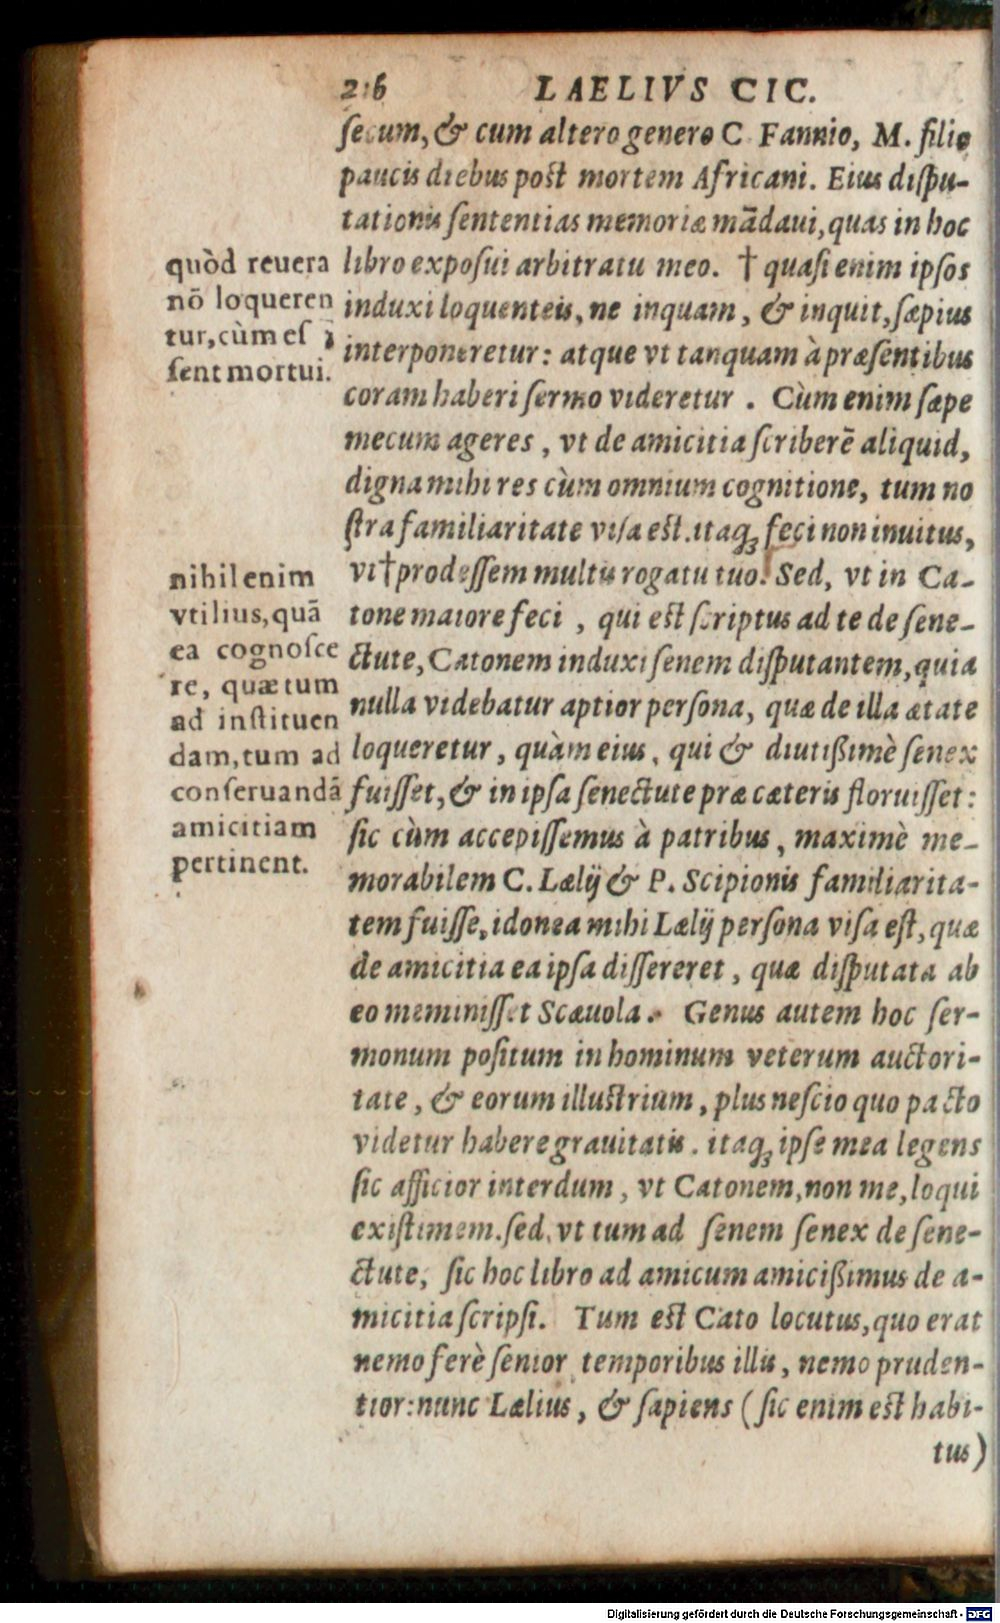 2:6 LAELIVS CIC.
secum, & cum altero genero C. Fannio, M. filio
paucis diebus post mortem Africani. Eius dispu-
tationis sententias memoriæ mãdaui, quas in hoc
libro exposui arbitratu meo. † quasi enim ipsos
induxi loquenteis, ne inquam, & inquit, sæpius
interponeretur: atque vt tanquam à præsentibus
coram haberi sermo videretur. Cùm enim sæpe
mecum ageres, vt de amicitia scriberẽ aliquid,
digna mihi res cùm omnium cognitione, tum no
stra familiaritate visa est. itaq; feci non inuitus,
vt † prodessem multis rogatu tuo. Sed, vt in Ca-
tone maiore feci, qui est scriptus ad te de sene-
ctute, Catonem induxi senem disputantem, quia
nulla videbatur aptior persona, quæ de illa ætate
loqueretur, quàm eius, qui & diutißimè senex
fuisset, & in ipsa senectute præ cæteris floruisset:
sic cùm accepissemus à patribus, maximè me-
morabilem C. Lælij & P. Scipionis familiarita-
tem fuisse, idonea mihi Lælij persona visa est, quæ
de amicitia ea ipsa dissereret, quæ disputata ab
eo meminisset Scæuola. Genus autem hoc ser-
monum positum in hominum veterum auctori-
tate, & eorum illustrium, plus nescio quo pacto
videtur habere grauitatis. itaq; ipse mea legens
sic afficior interdum, vt Catonem, non me, loqui
existimem. sed, vt tum ad senem senex de sene-
ctute, sic hoc libro ad amicum amicißimus de a-
micitia scripsi. Tum est Cato locutus, quo erat
nemo ferè senior temporibus illis, nemo pruden-
tior: nunc Lælius, & sapiens (sic enim est habi-
tus)
quòd reuera
nõ loqueren
tur, cùm es
sent mortui.
nihil enim
vtilius, quã
ea cognosce
re, quæ tum
ad instituen
dam, tum ad
conseruandã
amicitiam
pertinent.
Digitalisierung gefördert durch die Deutsche Forschungsgemeinschaft - DFG